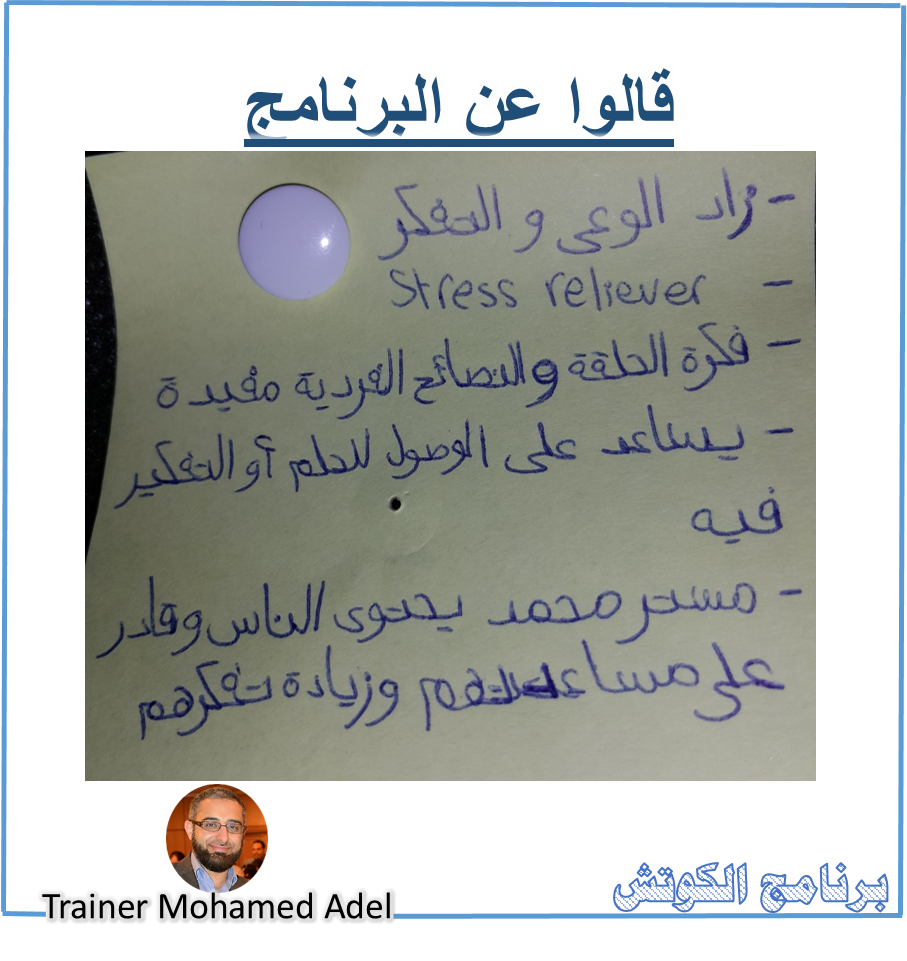 قالوا عن البرنامج
- زاد الوعى و التفكر
- Stress reliever
- فكرة الحلقة والنصائح الفردية مفيدة
- يساعد على الوصول للحلم أو التفكير
فيه
- مستر محمد يحتوى الناس وقادر
على مساعدتهم وزيادة تفكرهم
Trainer Mohamed Adel
برنامج الكوتش